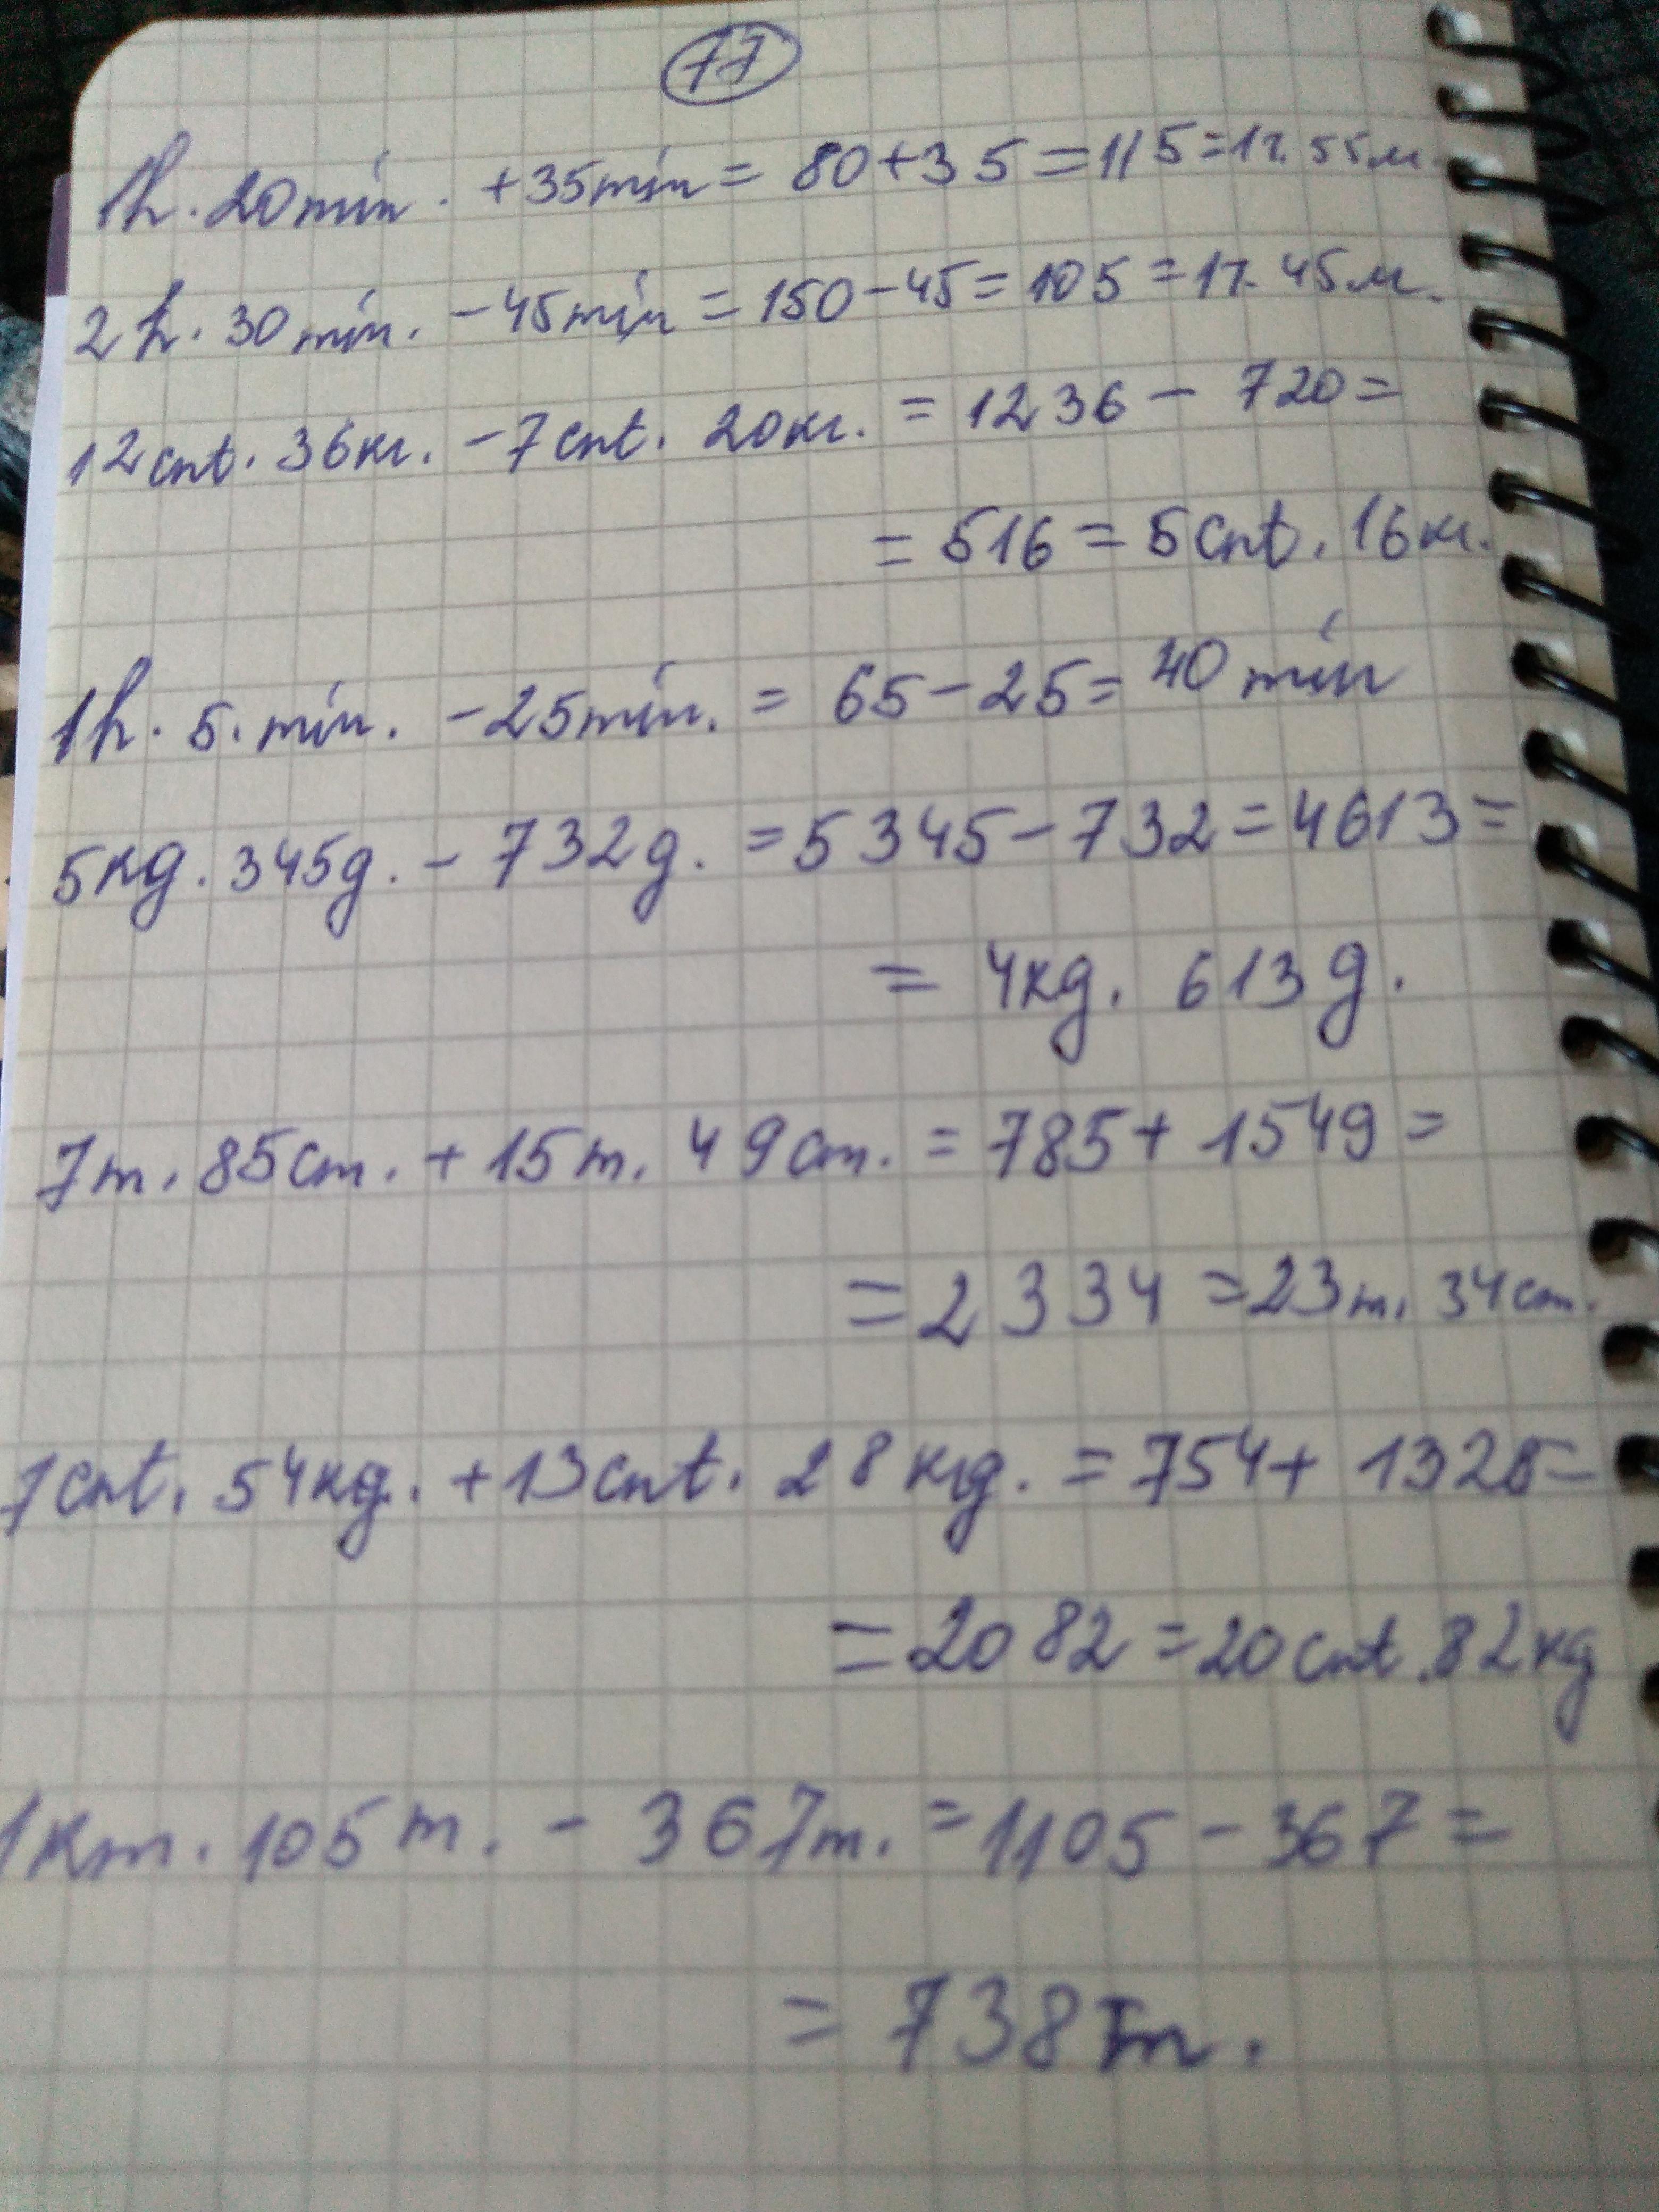 77
1h. 20min. +35min = 80+35=115=1г. 55м.
2h. 30min. -45min =150-45=105=1г. 45м.
12cnt. 36кг. -7cnt. 20кг. = 1236 - 720=
= 516 = 5cnt. 16кг.
1h. 5. min. -25min. = 65-25= 40 min
5кg. 345g. - 732g. =5345-732=4613=
= 4кg. 613g.
7m. 85cm. + 15m. 49cm. = 785+ 1549 =
= 2334 =23m. 34cm.
7cnt. 54кg. +13cnt. 28кg. =754+ 1328=
=2082 =20cnt. 82кg
1кm. 105m. - 367m. =1105-367=
= 738m.